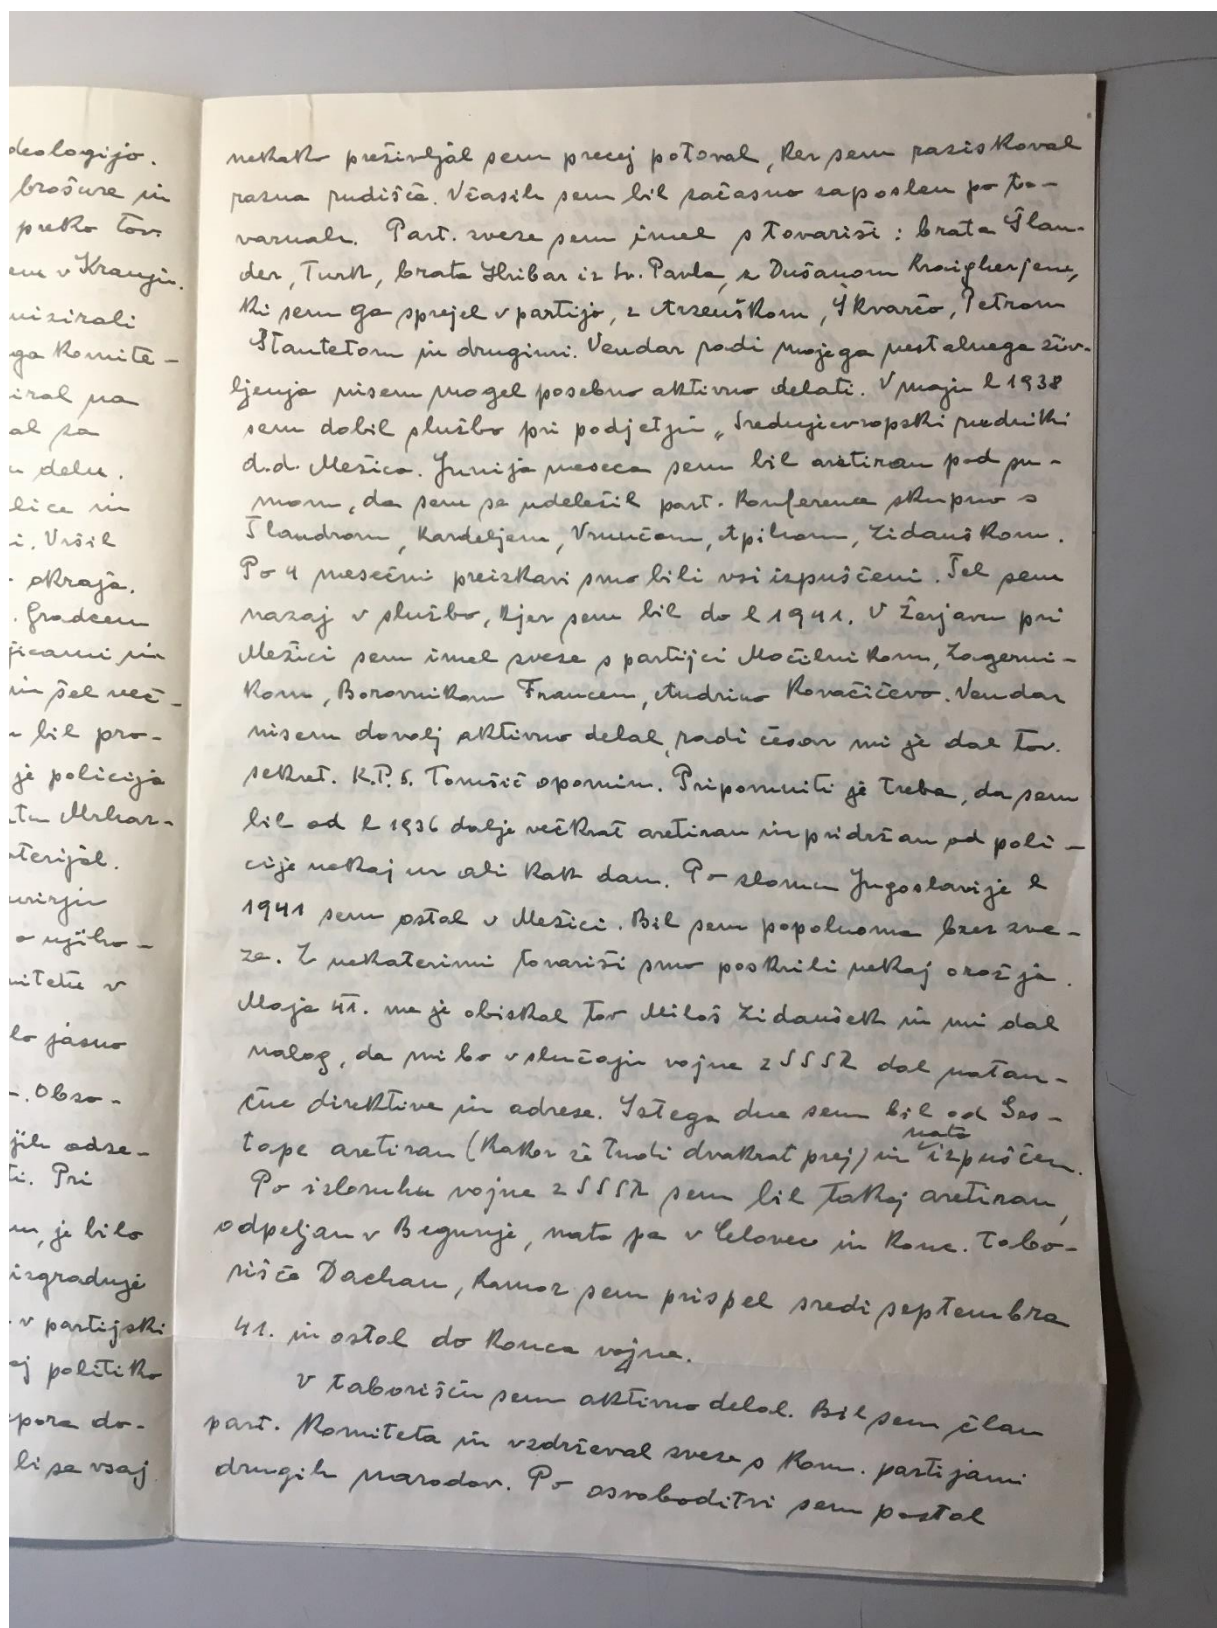 deologijo.
brošure in
preko tov.
v Kranju.
nizirali
ga komite-
iral na
al za
delu.
lice in
i. Vršil
okraja.
Gradcem
jicami in
in šel več-
bil pro-
je policija
tu Mrhar-
terijal.
o njiho-
mitetu v
lo jasno
Obso-
jih odse-
ti. Pri
je bilo
izgraduje
v partijski
ej politiko
pora do-
li se vsaj
nekako preživljal sem precej potoval, ker sem raziskoval
razna rudišča. Včasih sem bil začasno zaposlen po to-
varnah. Part. zveze sem imel s tovariši: brata Šlan-
der, Turk, brata Hribar iz Sv. Pavla, z Dušanom Kraigherjem,
ki sem ga sprejel v partijo, z Arzenškom, Škvarčo, Petrom
Štantetom in drugimi. Vendar radi mojega nestalnega živ-
ljenja nisem mogel posebno aktivno delati. V maju l 1938
sem dobil službo pri podjetju „Srednjeevropski rudniki
d.d. Mežica. Junija meseca sem bil aretiran pod su-
mom, da sem se udeležil part. konference skupno s
Šlandrom, Kardeljem, Vrunčom, Apihom, Zidanškom.
Po 4 mesečni preiskavi smo bili vsi izpuščeni. Šel sem
nazaj v službo, kjer sem bil do l 1941. V Žerjavu pri
Mežici sem imel zveze s partijci Močilnikom, Zagerni-
kom, Borovnikom Francem, Andrino Kovačičevo. Vendar
nisem dovolj aktivno delal, radi česar mi je dal tov.
sekret. K.P.S. Tomšič opomin. Pripomniti je treba, da sem
bil od l 1936 dalje večkrat aretiran in pridržan od poli-
cije nekaj ur ali kak dan. Po slomu Jugoslavije l
1941 sem ostal v Mežici. Bil sem popolnoma brez zve-
ze. Z nekaterimi tovariši smo poskrili nekaj orožja.
Maja 41. me je obiskal tov Miloš Zidanšek in mi dal
nalog, da mi bo v slučaju vojne z SSSR dal natan-
čne direktive in adrese. Istega dne sem bil od Ges-
tape aretiran (kakor že tudi dvakrat prej) in nato izpuščen.
Po izbruhu vojne z SSSR sem bil takoj aretiran,
odpeljan v Begunje, nato pa v Celovec in konc. tabo-
rišče Dachau, kamor sem prispel sredi septembra
41. in ostal do konca vojne.
V taborišču sem aktivno delal. Bil sem član
part. komiteta in vzdrževal zveze s kom. partijami
drugih narodov. Po osvoboditvi sem postal